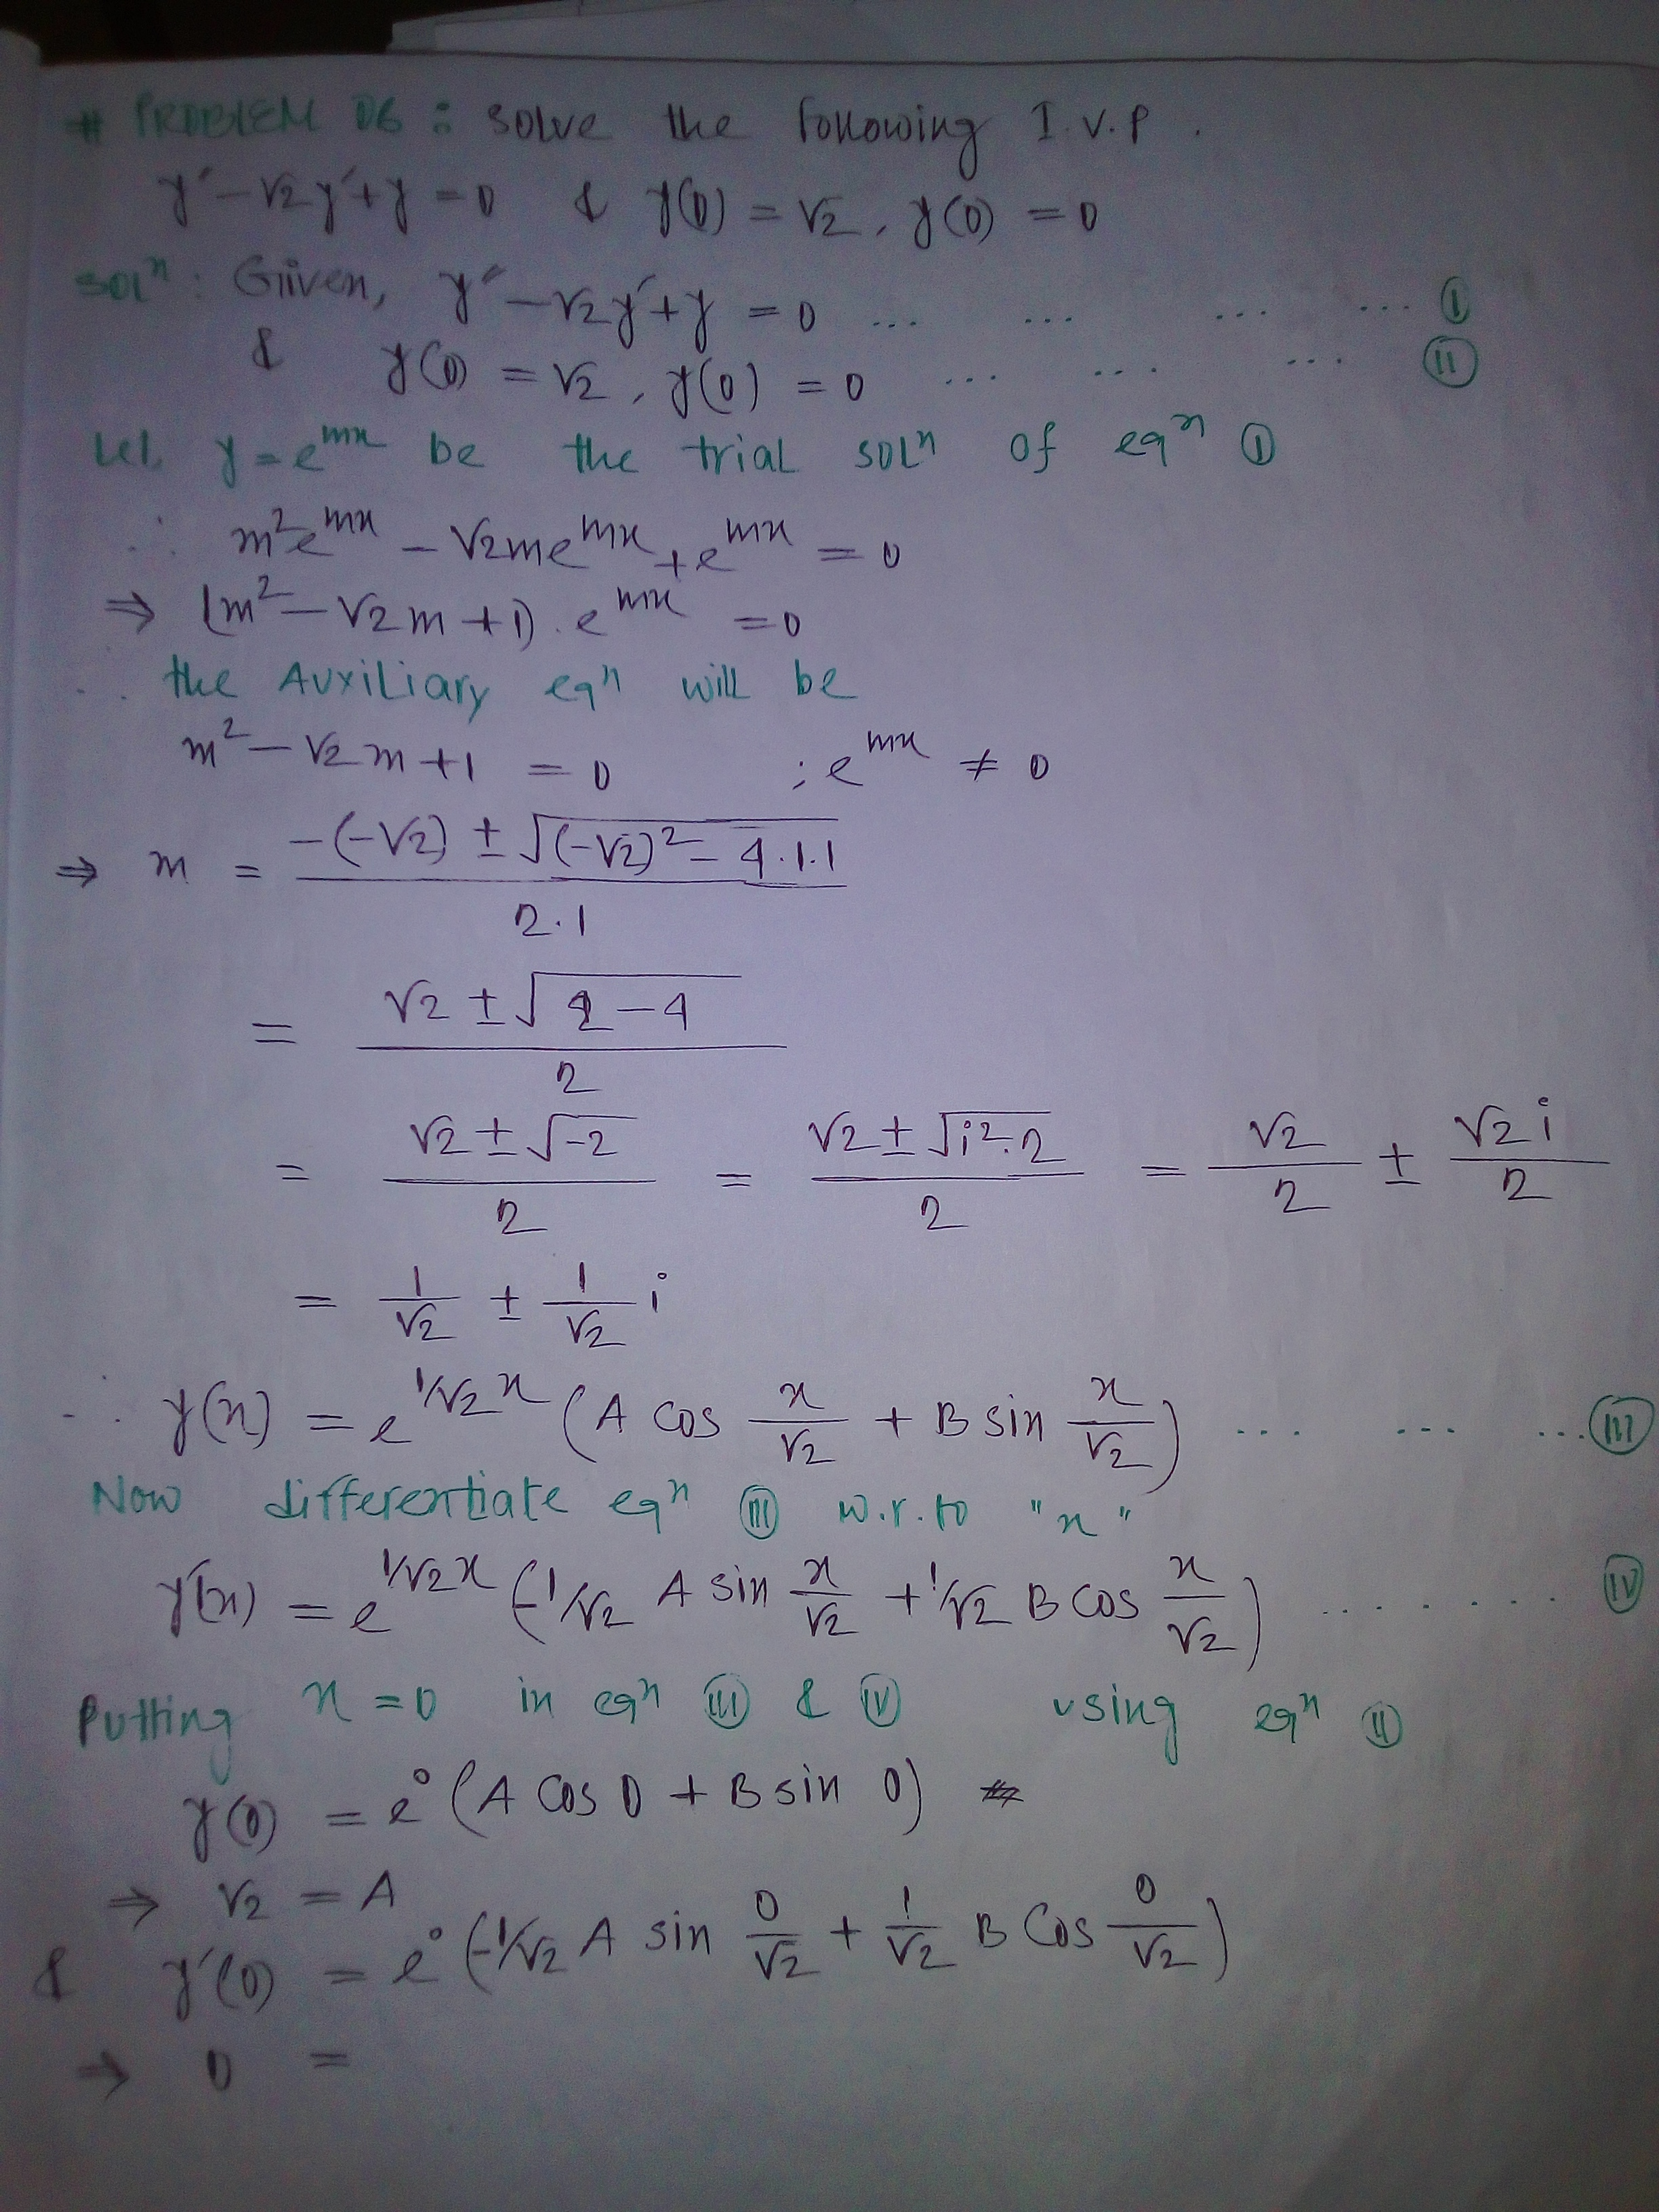 # PROBLEM 06 : solve the following I.V.P.
y″ − √2y′ + y = 0 & y(0) = √2, y′(0) = 0
solⁿ : Given, y″ − √2y′ + y = 0 ... ... ... ... (I)
& y(0) = √2, y′(0) = 0 ... ... ... (II)
Let, y = e^{mx} be the trial solⁿ of eqⁿ (I)
∴ m²e^{mx} − √2me^{mx} + e^{mx} = 0
⇒ (m² − √2m + 1) . e^{mx} = 0
∴ the Auxiliary eqⁿ will be
m² − √2m + 1 = 0 ; e^{mx} ≠ 0
⇒ m = (−(−√2) ± √((−√2)² − 4.1.1)) / 2.1
= (√2 ± √(2 − 4)) / 2
= (√2 ± √−2) / 2 = (√2 ± √(i².2)) / 2 = √2/2 ± √2i/2
= 1/√2 ± 1/√2 i
∴ y(x) = e^{1/√2 x} (A cos x/√2 + B sin x/√2) ... ... ... (III)
Now differentiate eqⁿ (III) w.r.to "x"
y′(x) = e^{1/√2 x} (−1/√2 A sin x/√2 + 1/√2 B cos x/√2) ........ (IV)
Putting x = 0 in eqⁿ (III) & (IV) using eqⁿ (II)
y(0) = e⁰ (A cos 0 + B sin 0)
⇒ √2 = A
& y′(0) = e⁰ (−1/√2 A sin 0/√2 + 1/√2 B cos 0/√2)
⇒ 0 =